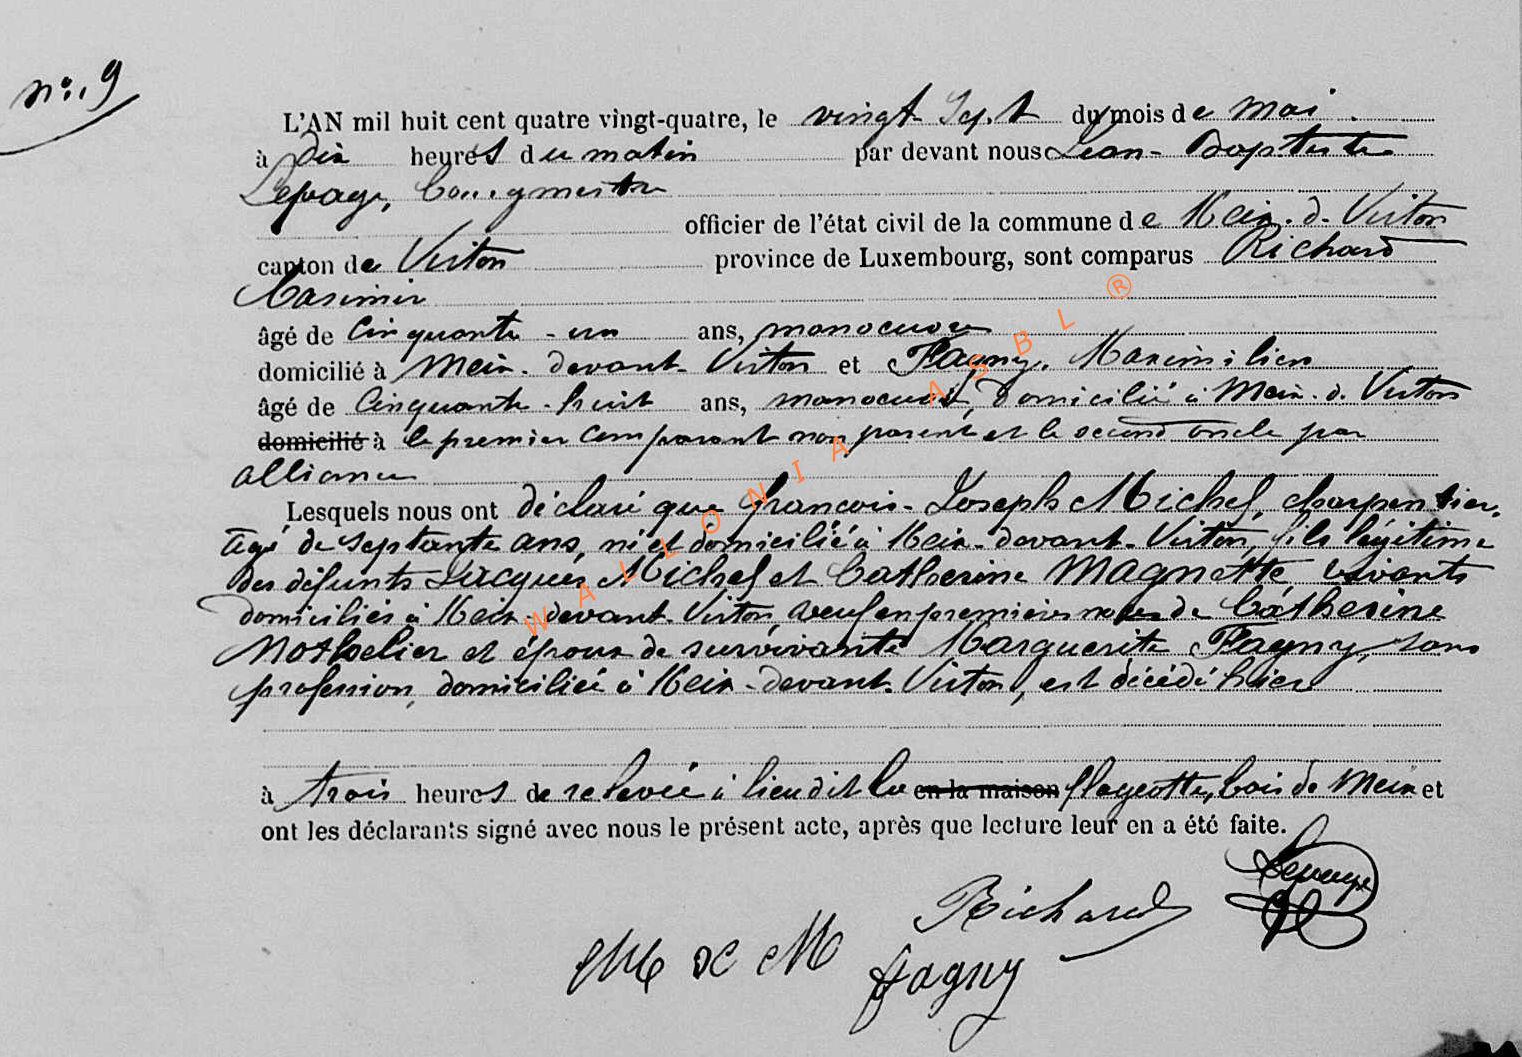 n° 9
L'AN mil huit cent quatre vingt-quatre, le vingt Sept du mois de Mai.
à Dix heures du matin par devant nous Jean-Baptiste
Lepage, bourgmestre
officier de l'état civil de la commune de Meix-d-Virton
canton de Virton province de Luxembourg, sont comparus Richard
Casimir
âgé de Cinquante-un ans, manoeuvre
domicilié à Meix-devant-Virton et Fagny, Maximilien
âgé de Cinquante-huit ans, manoeuvre, domicilié à Meix-d-Virton
domicilié à le premier comparant non parent et le second oncle par
alliance
Lesquels nous ont déclaré que François-Joseph Michel, charpentier,
âgé de septante ans, né et domicilié à Meix-devant-Virton, fils légitime
des défunts Jacques Michel et Catherine Magnette vivants
domiciliés à Meix-devant-Virton, veuf en premières noces de Catherine
Mothelier et époux de survivante Marguerite Fagny, sans
profession, domiciliée à Meix-devant-Virton, est décédé hier
à trois heures de relevée à lieudit la en la maison flayotte, bois de Meix et
ont les déclarants signé avec nous le présent acte, après que lecture leur en a été faite.
Lepage
Richard
Fagny
WALLONIA ASBL ®